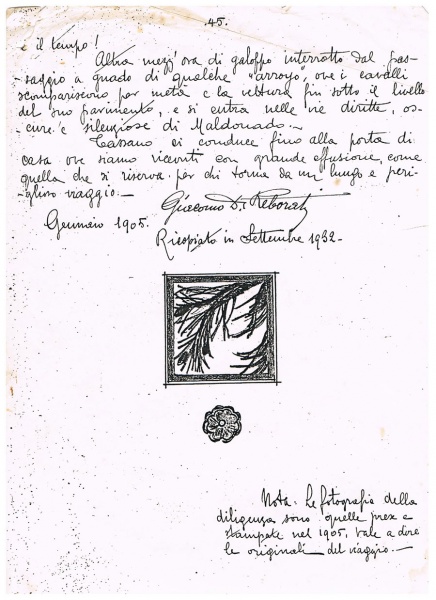 45.
il tempo!
Altra mezz'ora di galoppo interrotto dal pas-
-saggio a guado di qualche "arroyo", ove i cavalli
scompariscono per metà e la vettura fin sotto il livello
del suo pavimento, e si entra nelle vie diritte, os-
cure e silenziose di Maldonado.-
Cassano ci conduce fino alla porta di
casa ove siamo ricevuti con grande effusione, come
quella che si riserva per chi torna da un lungo e peri-
glioso viaggio.-
Giacomo D. Reborati
Gennaio 1905.
Ricopiato in Settembre 1932-
Nota. Le fotografie della
diligenza sono quelle prese e
stampate nel 1905, vale a dire
le originali del viaggio.-